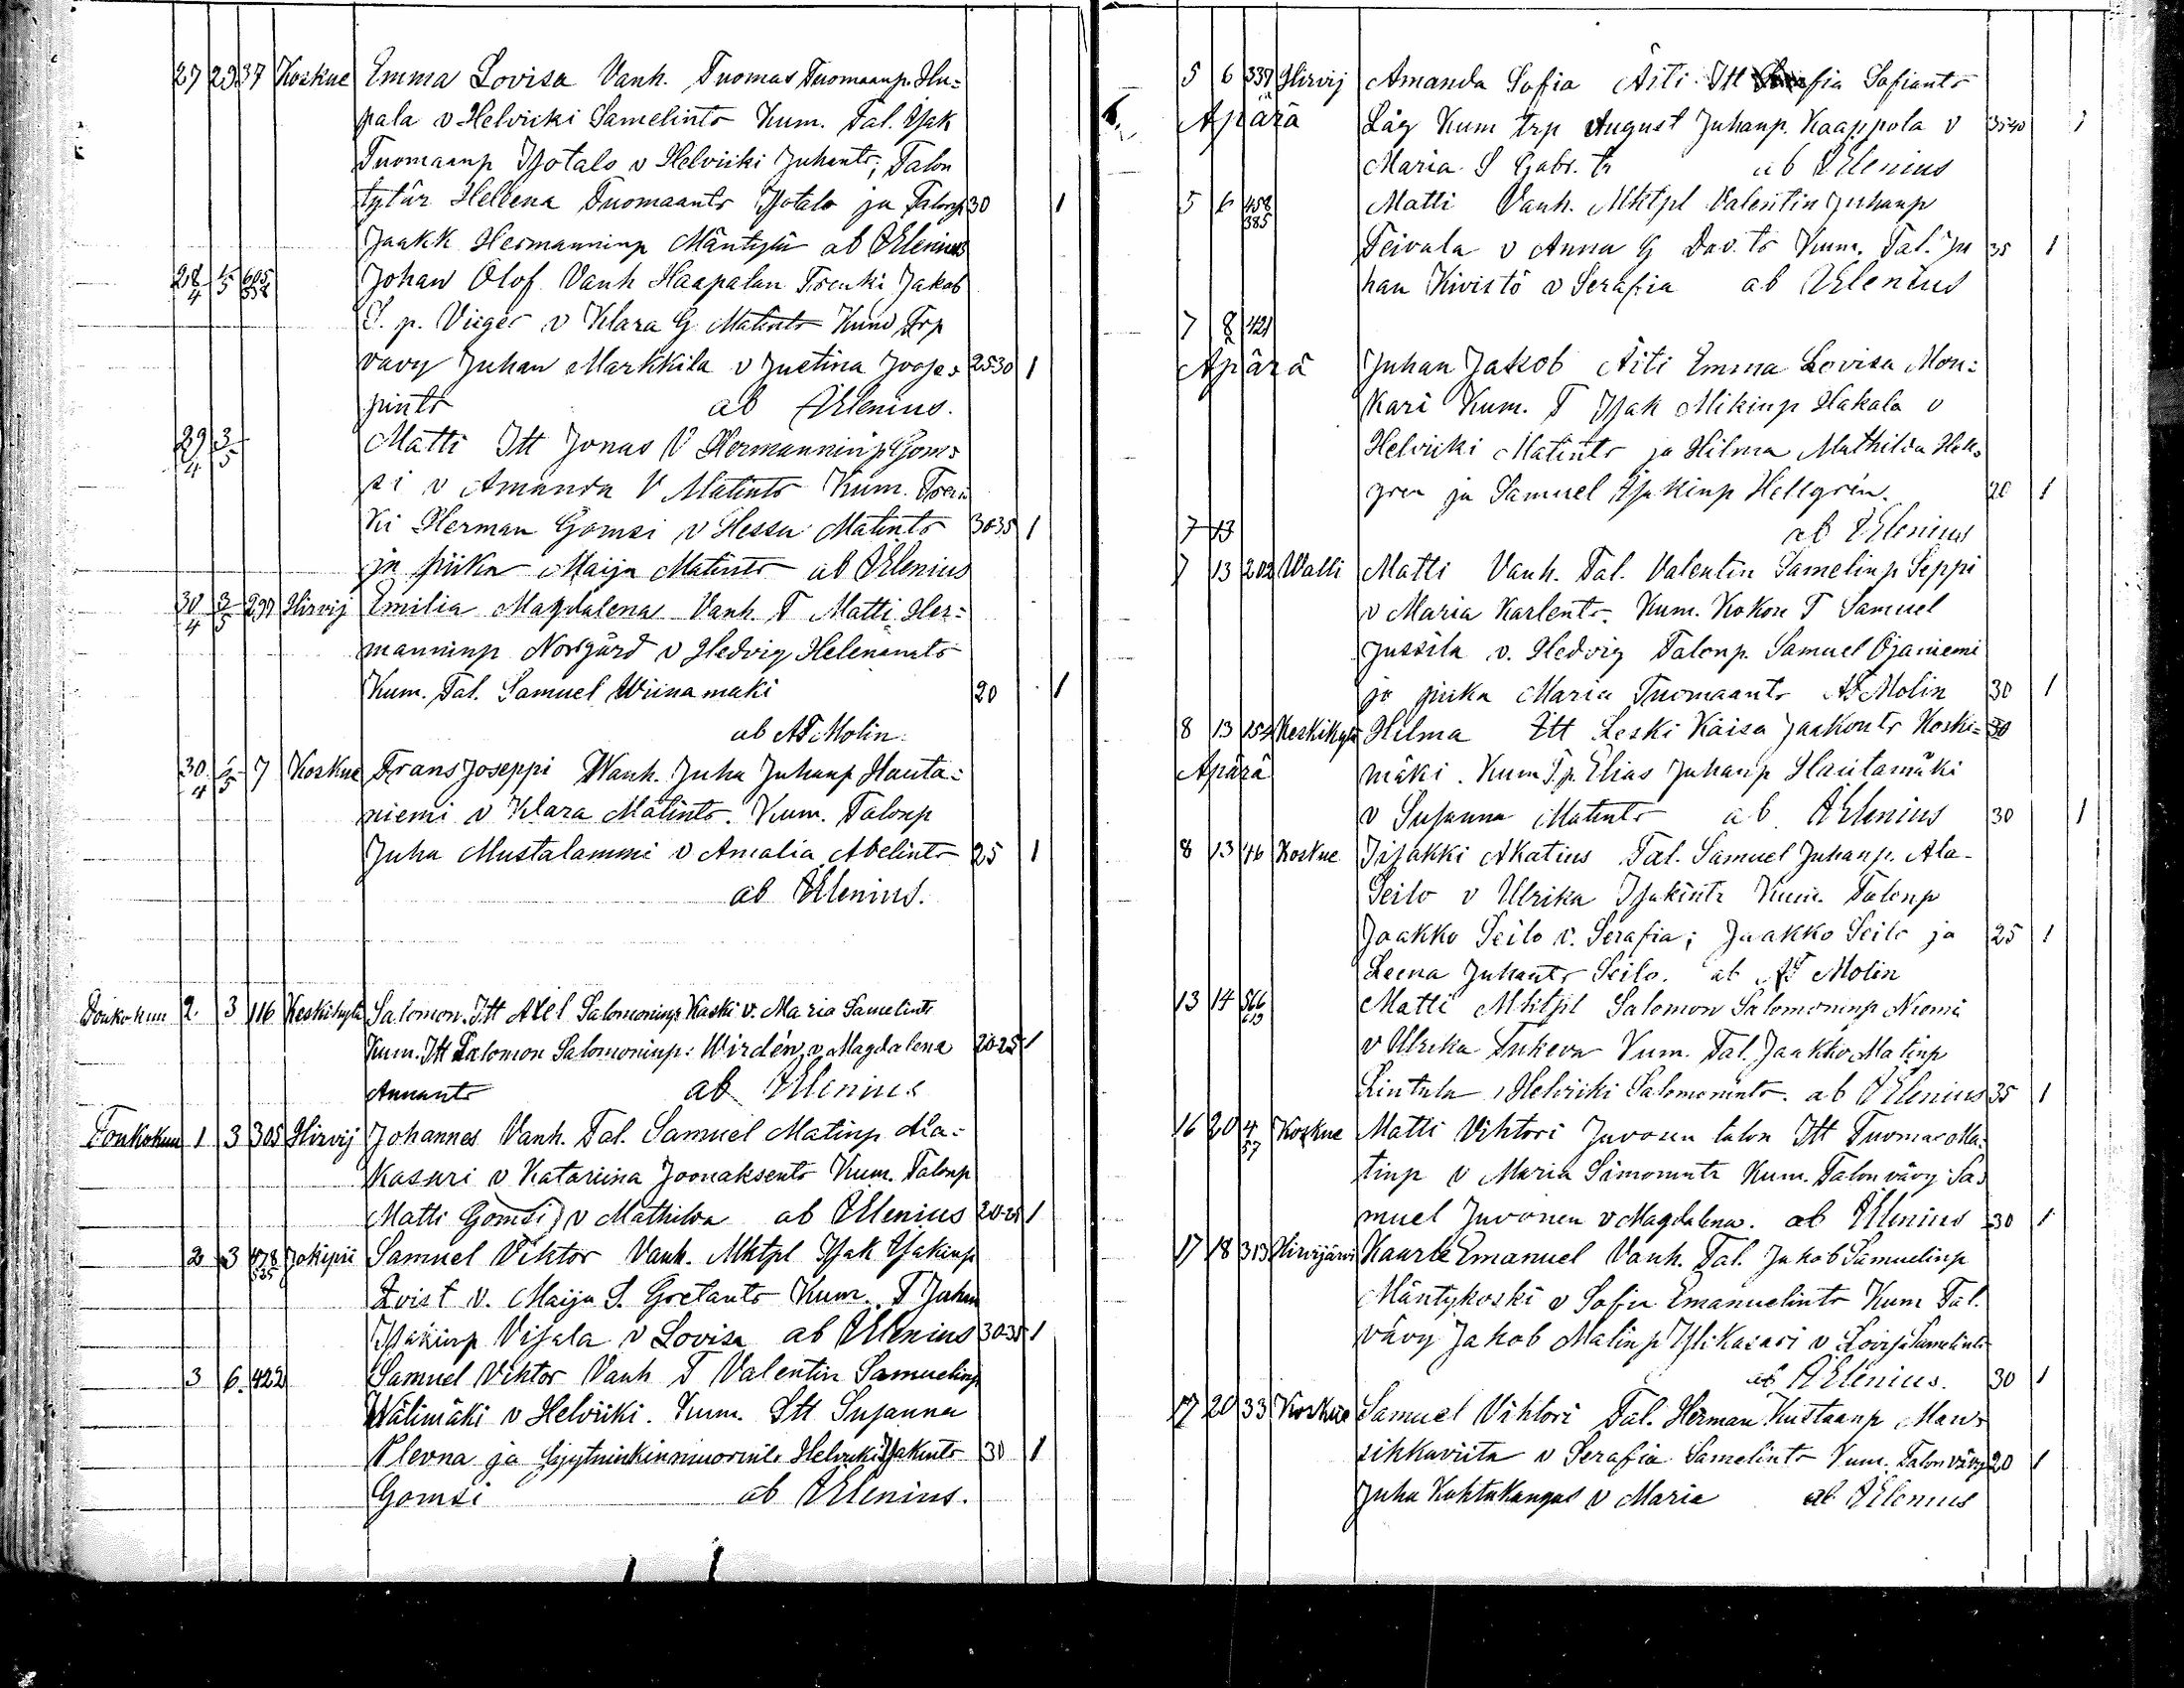 27 29 37 Koskue Emma Lovisa Vanh. Tuomas Tuomaanp. Hu=
pala v Helviiki Samelintr Kum. Tal. Isak
Tuomaanp Isotalo v Helviiki Juhantr; Talon
tytär Hellena Tuomaantr Isotalo ja Talonp 30 1
Jaakk Hermanninp Mäntylä ab Elenius
28/4 1/5 605/538 Johan Olof Vanh Haapalan Trenki Jakob
S. p. Viiger v Klara G Matintr Kum Trp
vävy Juhan Markkila v Justina Joose= 25 30 1
pintr ab Elenius.
29/4 3/5 Matti Itt Jonas V Hermanninp Gom=
si v Amanda V Matintr Kum. Tren
ki Herman Gomsi v Hessa Matintr 30 35 1
ja piika Maija Matintr ab Elenius
30/4 3/5 297 Hirvij Emilia Magdalena Vanh. T Matti Her=
manninp Norrgård v Hedvig Helenantr
Kum. Tal. Samuel Wiinamaki 20 1
ab AF Molin.
30/4 5/5 7 Koskue Frans Joseppi Wanh. Juha Juhanp Hauta=
niemi v Klara Matintr. Kum. Talonp
Juha Mustalammi v Amalia Abelintr 25 1
ab Elenius.
Toukokuu 2. 3 116 Keskikylä Salomon. Itt Axel Salomoninp Kaski v. Maria Samelintr
Kum. Itt Salomon Salomoninp: Wirdén v Magdalena 20-25 1
Annantr ab Elenius
Toukokuu 1 3 305 Hirvij Johannes Vanh. Tal. Samuel Matinp Ala=
kasari v Katariina Joonaksentr Kum. Talonp
Matti Gomsi v Mathilda ab Elenius 20-25 1
2 3 478/525 Jokipii Samuel Viktor Vanh. Mktpl Isak Isakinp
Qvist v. Maija S. Gretantr Kum. T Juhan
Isakinp Visala v Lovisa ab Elenius 30-35 1
3 6. 422 Samuel Viktor Vanh T Valentin Samuelinp
Wälimäki v Helviiki. Kum. Itt Susanna
Plevna ja Helviiki Isakintr 30 1
Gomsi ab Elenius.
5 6 337 Hirvij Amanda Sofia Äiti Itt Sofia Sofiantr
Äpärä Låg Kum trp August Juhanp. Kaappola v 35 40 1
Maria S Gabr. tr ab Elenius
5 6 458/385 Matti Vanh. Mktpl Valentin Juhanp
Teivala v Anna G Dav. tr Kum. Tal. Ju 35 1
han Kivistö v Serafia ab Elenius
7 8 421
Äpärä Juhan Jakob Äiti Emma Lovisa Mon=
kari Kum. T Isak Mikinp Hakala v
Helviiki Matintr ja Hilma Mathilda Hell=
gren ja Samuel Isakinp Hellgrén. 20 1
7 13 ab Elenius
7 13 202 Walli Matti Vanh. Tal. Valentin Samelinp Seppi
v Maria Karlentr. Kum. Kokon T Samuel
Jussila v. Hedvig Talonp. Samuel Ojaniemi
ja piika Maria Tuomaantr AF Molin 30 1
8 13 154 Keskikylä Hilma Itt Leski Kaisa Jaakontr Koski= 30
Äpärä mäki. Kum T.p. Elias Juhanp Hautamäki
v Susanna Matintr ab Elenius 30 1
8 13 46 Koskue Iisakki Akatius Tal. Samuel Juhanp. Ala-
Seilo v Ulrika Isakintr Kum. Talonp
Jaakko Seilo v. Serafia; Jaakko Seilo ja 25 1
Leena Juhantr Seilo. ab AF Molin
13 14 566/619 Matti Mktpl Salomon Salomoninp Niemi
v Ulrika Tukeva Kum. Tal. Jaakko Matinp
Lintula, Helviiki Salomonintr. ab Elenius 35 1
16 20 4/57 Koskue Matti Vihtori Juvosen talon Itt Tuomas Ma=
tinp v Maria Simonintr Kum. Talon vävy Sa=
muel Juvonen v Magdalena. ab Elenius 30 1
17 18 313 Hirvijärvi Kaarle Emanuel Vanh. Tal. Jakob Samuelinp
Mäntykoski v Sofia Emanuelintr Kum Tal.
vävy Jakob Matinp Ylikasari v Lovisa Samelintr
ab Elenius. 30 1
17 20 33 Koskue Samuel Vihtori Tal. Herman Kustaanp Man=
sikkaviita v Serafia Samelintr Kum. Talon vävy 20 1
Juha Kohtakangas v Maria ab Elenius